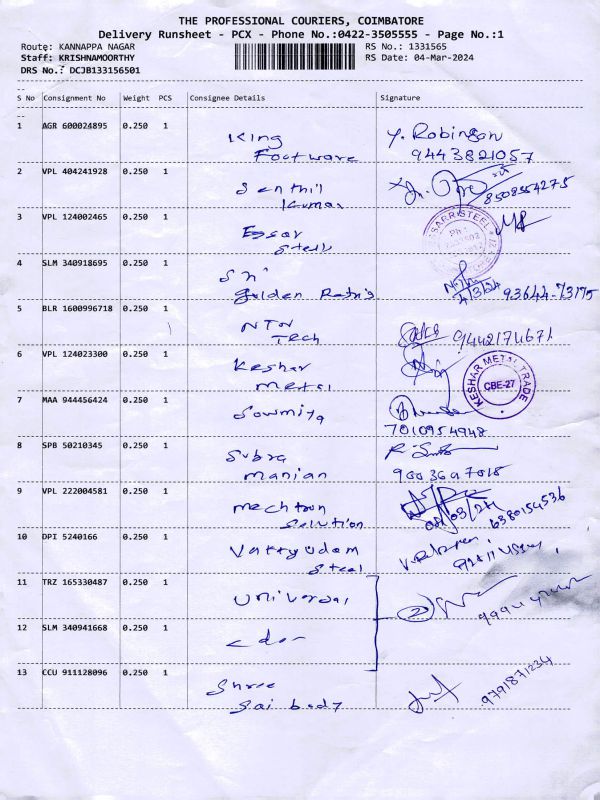 THE PROFESSIONAL COURIERS, COIMBATORE
Delivery Runsheet - PCX - Phone No.:0422-3505555 - Page No.:1
Route: KANNAPPA NAGAR RS No.: 1331565
Staff: KRISHNAMOORTHY RS Date: 04-Mar-2024
DRS No.: DCJB133156501
S No Consignment No Weight PCS Consignee Details Signature
1 AGR 600024895 0.250 1 King Y. Robinson
Footware 9443821057
2 VPL 404241928 0.250 1 Senthil
Kumar 8508554275
3 VPL 124002465 0.250 1 Essar
Steels
4 SLM 340918695 0.250 1 Sri
golden 4/3/24 93644-73175
5 BLR 1600996718 0.250 1 NTN
Tech 9442174671
6 VPL 124023300 0.250 1 Keshar
metal KESHAR METAL TRADE CBE-27
7 MAA 944456424 0.250 1 Sowmiya
7010954948
8 SPB 50210345 0.250 1 Subra
manian 9003697015
9 VPL 222004581 0.250 1 mechtron
Solution 6380154536
10 DPI 5240166 0.250 1
Steel
11 TRZ 165330487 0.250 1 Universal
2
12 SLM 340941668 0.250 1
13 CCU 911128096 0.250 1 Shree
Sai body 9791871234